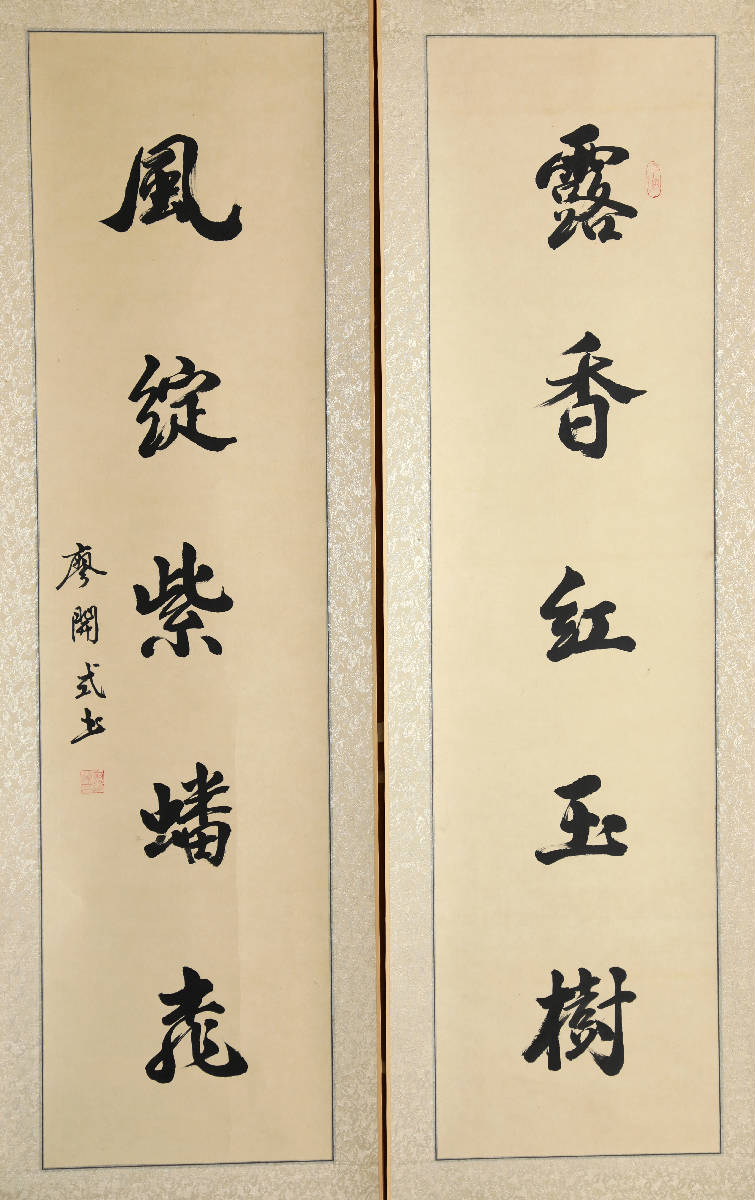 露香紅玉樹
風綻紫蟠桃
廖開式書